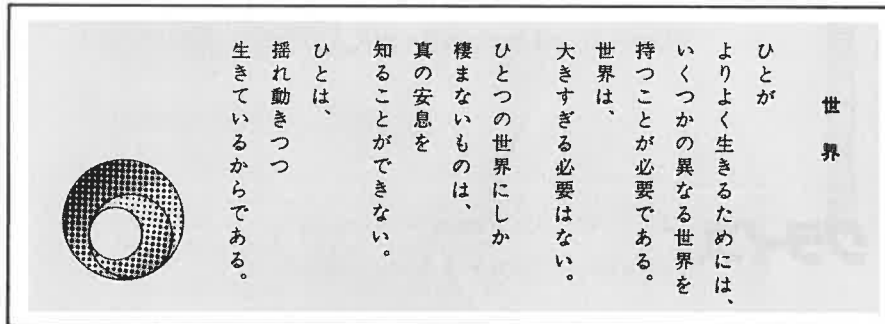 世界
ひとが
よりよく生きるためには、
いくつかの異なる世界を
持つことが必要である。
世界は、
大きすぎる必要はない。
ひとつの世界にしか
棲まないものは、
真の安息を
知ることができない。
ひとは、
揺れ動きつつ
生きているからである。